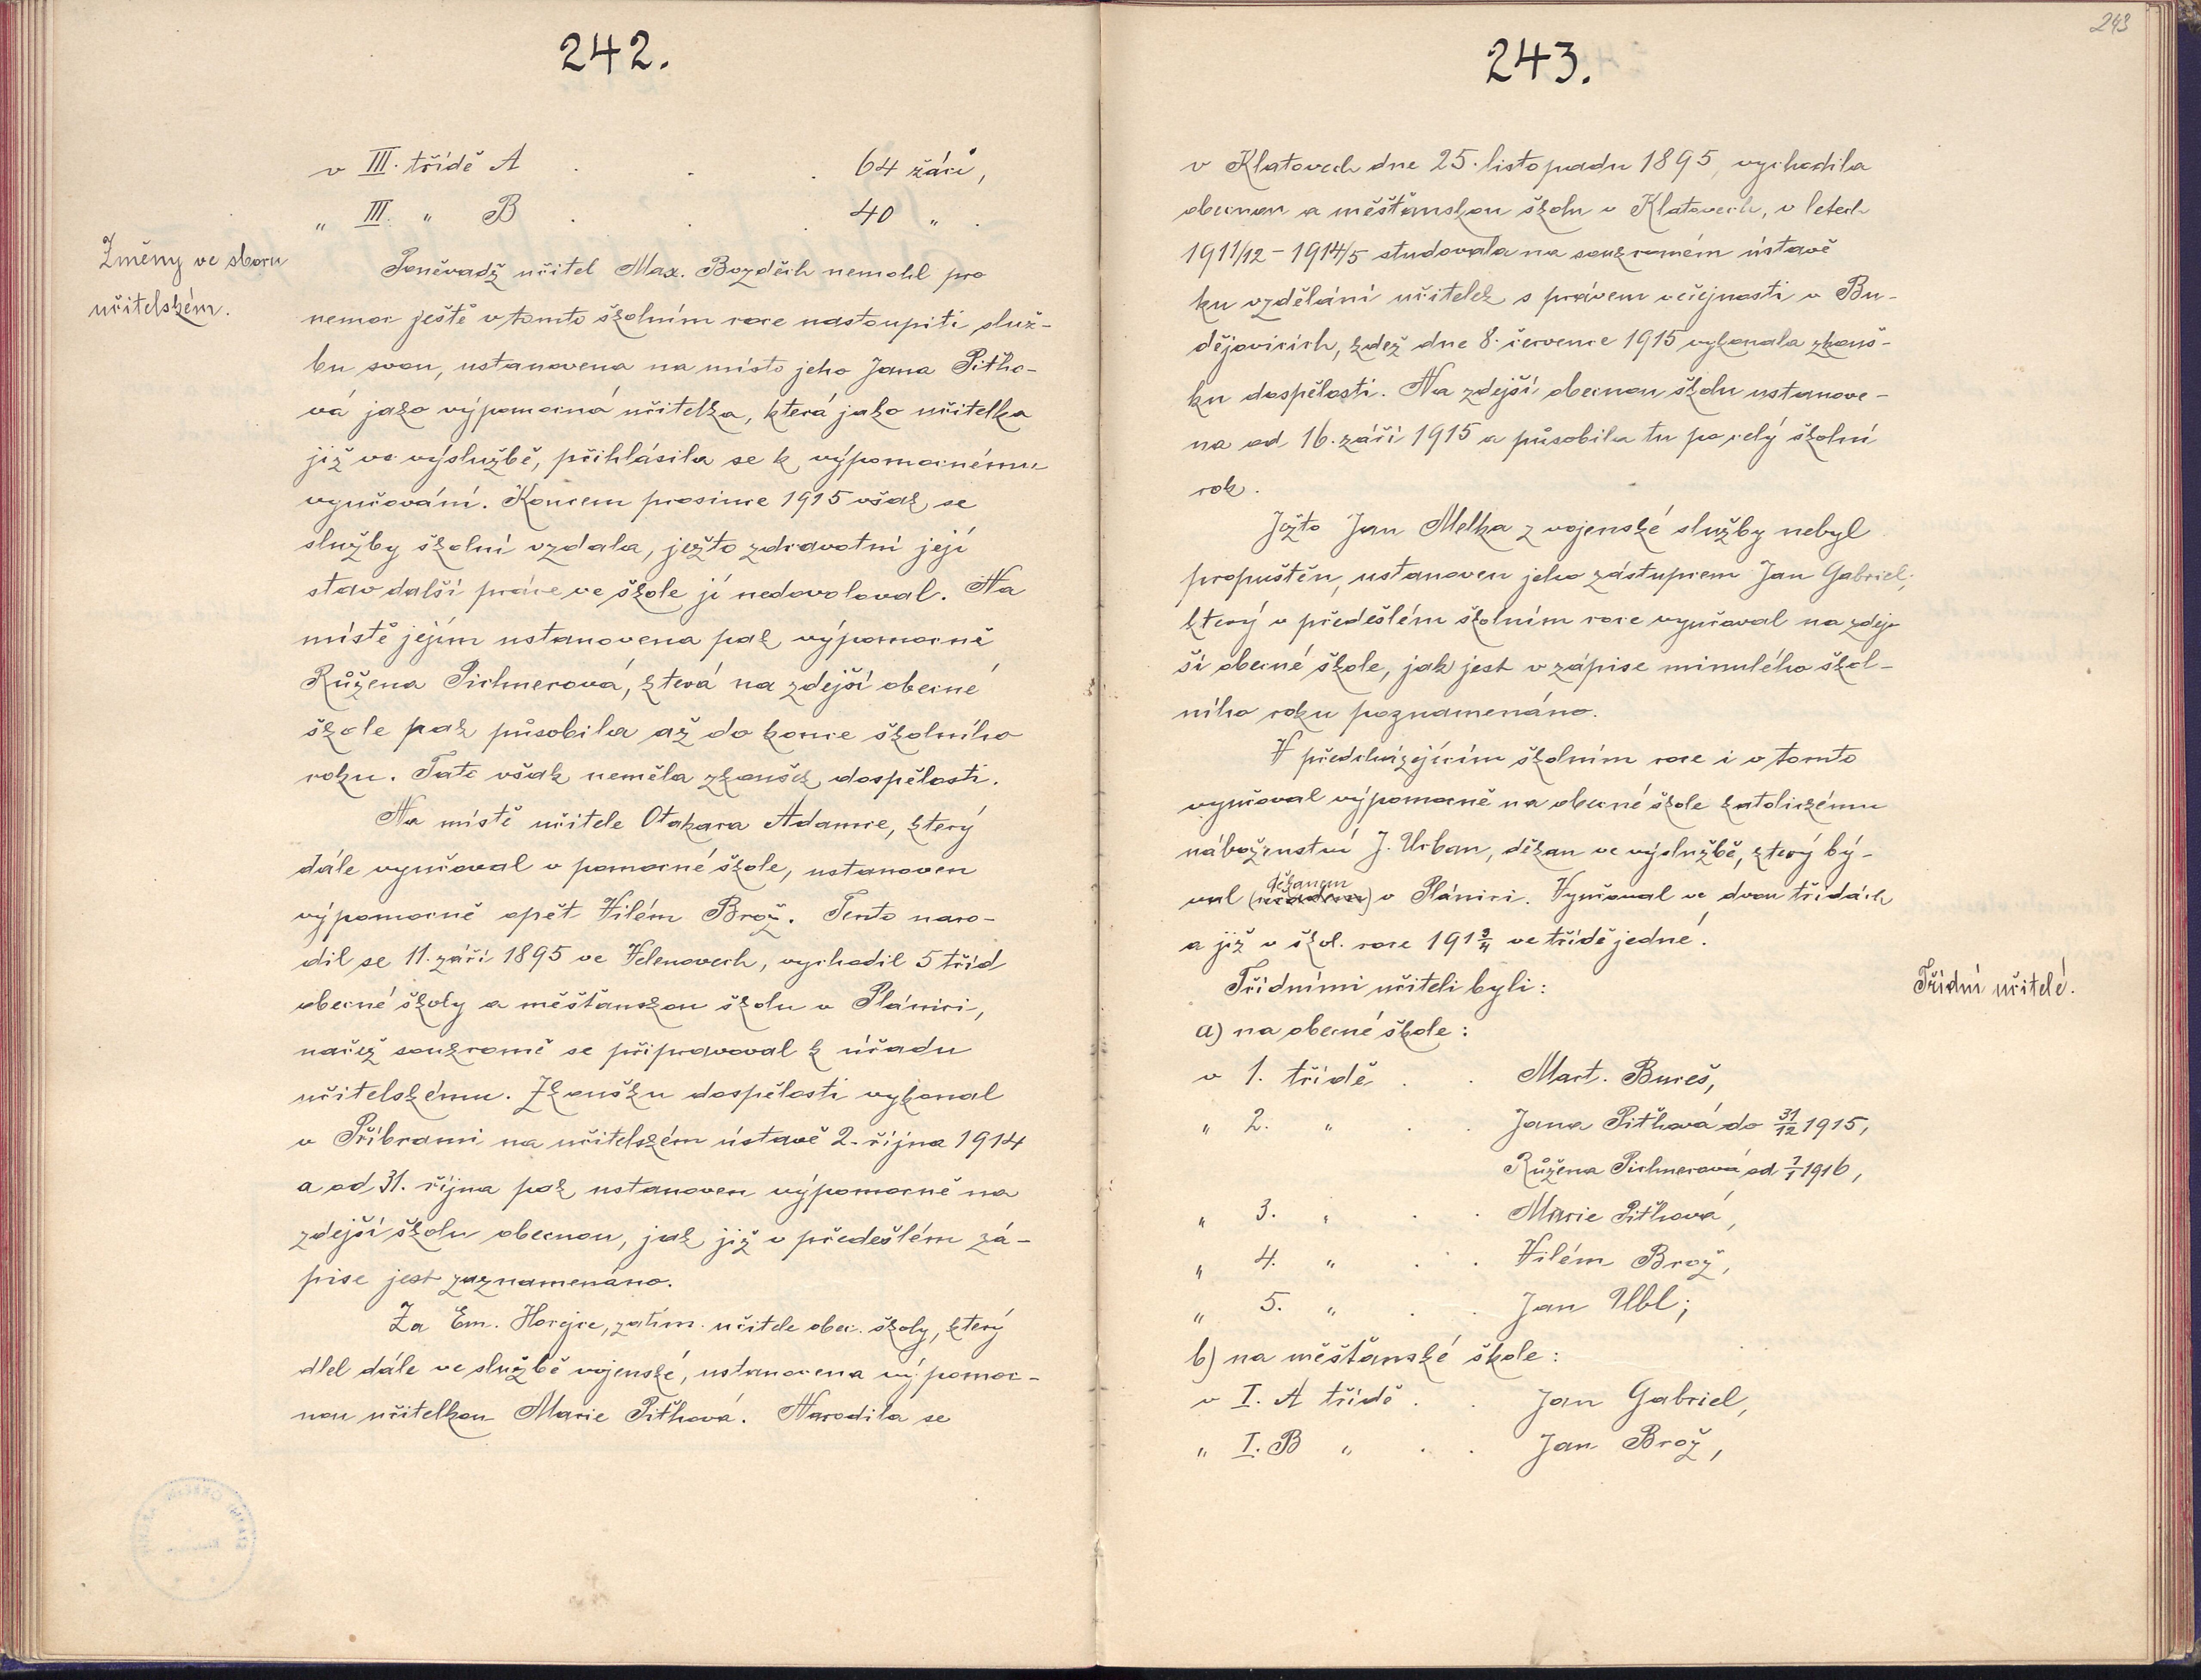 242.
v III. třídě A . . . 64 žáci,
„ III. „ B . . . 40 „ .
Změny ve sboru
učitelském.
Poněvadž učitel Max. Bozděch nemohl pro
nemoc ještě v tomto školním roce nastoupiti služ-
bu svou, ustanovena na místo jeho Jana Pitho-
vá jako výpomocná učitelka, která jako učitelka
již ve výslužbě, přihlásila se k výpomocnému
vyučování. Koncem prosince 1915 však se
služby školní vzdala, ježto zdravotní její
stav další práce ve škole jí nedovoloval. Na
místě jejím ustanovena pak výpomocně
Růžena Pichnerová, která na zdejší obecné
škole pak působila až do konce školního
roku. Tato však neměla zkoušek dospělosti.
Na místě učitele Otakara Adamce, který
dále vyučoval v pomocné škole, ustanoven
výpomocně opět Vilém Brož. Tento naro-
dil se 11. září 1895 ve Velenovech, vychodil 5 tříd
obecné školy a měšťanskou školu v Plánici,
načež soukromě se připravoval k úřadu
učitelskému. Zkoušku dospělosti vykonal
v Příbrami na učitelském ústavě 2. října 1914
a od 31. října pak ustanoven výpomocně na
zdejší školu obecnou, jak již v předešlém zá-
pise jest zaznamenáno.
Za Em. Horejce, zatím. učitele obec. školy, který
dlel dále ve službě vojenské, ustanovena výpomoc-
nou učitelkou Marie Pithová. Narodila se
243
243.
v Klatovech dne 25. listopadu 1895, vychodila
obecnou a měšťanskou školu v Klatovech, v letech
1911/12 - 1914/5 studovala na soukromém ústavě
ku vzdělání učitelek s právem veřejnosti v Bu-
dějovicích, kdež dne 8. července 1915 vykonala zkouš-
ku dospělosti. Na zdejší obecnou školu ustanove-
na od 16. září 1915 a působila tu po celý školní
rok.
Ježto Jan Melka z vojenské služby nebyl
propuštěn, ustanoven jeho zástupcem Jan Gabriel,
který v předešlém školním roce vyučoval na zdej-
ší obecné škole, jak jest v zápise minulého škol-
ního roku poznamenáno.
V předcházejícím školním roce i v tomto
vyučoval výpomocně na obecné škole katolickému
náboženství J. Urban, děkan ve výslužbě, který bý-
děkanem
val v Plánici. Vyučoval ve dvou třídách
a již v škol. roce 191 3/4 ve třídě jedné.
Třídními učiteli byli:
Třídní učitelé.
a) na obecné škole:
v 1. třídě . . Mart. Bureš,
„ 2. „ . . Jana Pithová do 31/12 1915,
Růžena Pichnerová od 7/1 1916,
„ 3. „ . . Marie Pithová,
„ 4. „ . . Vilém Brož,
„ 5. „ . . Jan Ubl;
b) na měšťanské škole:
v I. A třídě . . Jan Gabriel,
„ I. B „ . . Jan Brož,